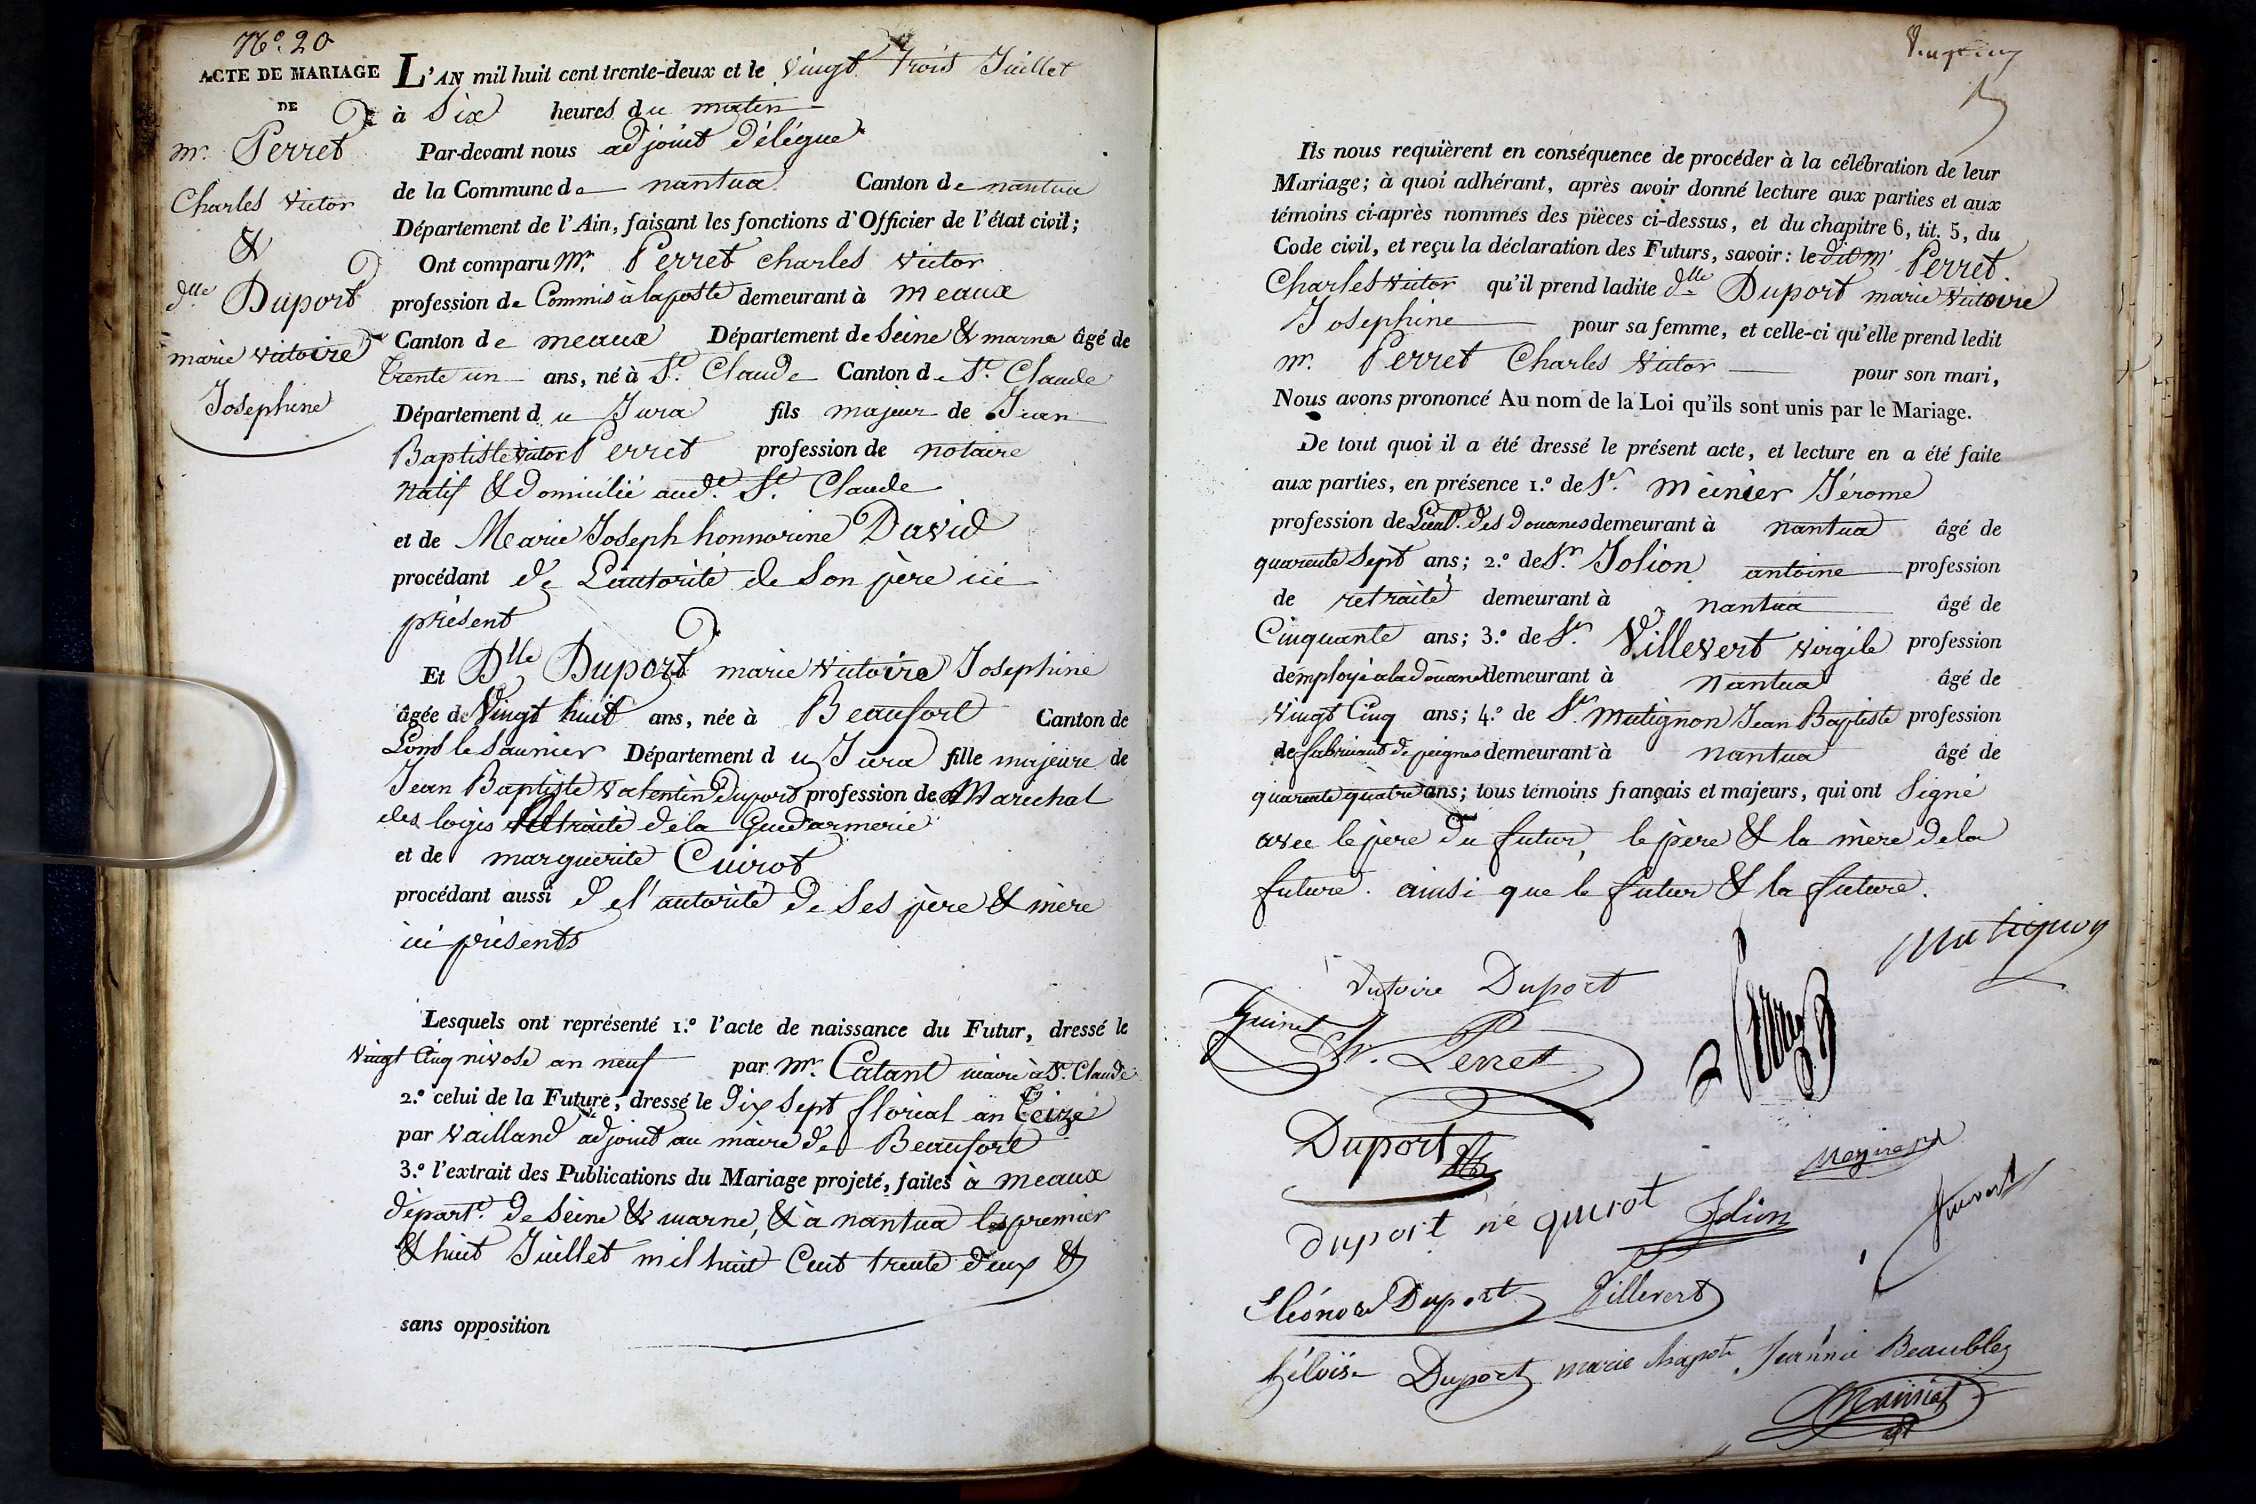 N.º 20
ACTE DE MARIAGE
DE
mr. Perret
Charles victor
&
dlle Duport
marie victoire
Josephine
L'AN mil huit cent trente-deux et le vingt trois Juillet
à six heures du matin
Par-devant nous adjoint délégué
de la Commune de nantua Canton de nantua
Département de l'Ain, faisant les fonctions d'Officier de l'état civil;
Ont comparu Mr. Perret charles victor
profession de Commis à la poste demeurant à meaux
Canton de meaux Département de Seine & marne âgé de
trente un ans, né à St. Claude Canton de St. Claude
Département du Jura fils majeur de Jean
Baptiste victor Perret profession de notaire
natif & domicilié aud.t St. Claude
et de Marie Joseph honnorine David
procédant de L'autorité de son père ici
présent
Et Dlle Duport marie victoire Josephine
âgée de Vingt huit ans, née à Beaufort Canton de
Lons le Saunier Département du Jura fille majeure de
Jean Baptiste valentin Duport profession de Marechal
des logis Retraité de la Gendarmerie
et de marguerite Cuirot
procédant aussi de l'autorité de ses père & mère
ici présents
Lesquels ont représenté 1.º l'acte de naissance du Futur, dressé le
vingt Cinq nivose an neuf par Mr. Catant maire à St. Claude
2.º celui de la Future, dressé le dix sept floréal an treize
par Vailland adjoint au maire de Beaufort
3.º l'extrait des Publications du Mariage projeté, faites à meaux
départ.t de Seine & marne, & à nantua les premier
& huit Juillet mil huit Cent trente deux &
sans opposition
Ils nous requièrent en conséquence de procéder à la célébration de leur
Mariage; à quoi adhérant, après avoir donné lecture aux parties et aux
témoins ci-après nommés des pièces ci-dessus, et du chapitre 6, tit. 5, du
Code civil, et reçu la déclaration des Futurs, savoir: le dit mr Perret
Charles victor qu'il prend ladite dlle Duport marie victoire
Josephine pour sa femme, et celle-ci qu'elle prend ledit
mr. Perret Charles Victor pour son mari,
Nous avons prononcé Au nom de la Loi qu'ils sont unis par le Mariage.
De tout quoi il a été dressé le présent acte, et lecture en a été faite
aux parties, en présence 1.º de Sr. Meinier Jérome
profession de Lieut. des Douanes demeurant à nantua âgé de
quarente sept ans; 2.º de Sr. Jolion antoine profession
de retraité demeurant à nantua âgé de
Cinquante ans; 3.º de Sr. Villevert virgile profession
d'employé à la douane demeurant à nantua âgé de
vingt Cinq ans; 4.º de Sr. Matignon Jean Baptiste profession
de fabricant de peignes demeurant à nantua âgé de
quarente quatre ans; tous témoins français et majeurs, qui ont signé
avec le père du futur, le père & la mère de la
future. ainsi que le futur & la future.
Matignon
Victoire Duport
Perret
Duport
duport né quirot
Jolion
Eléonore Duport
Villevert
héloïse Duport marie